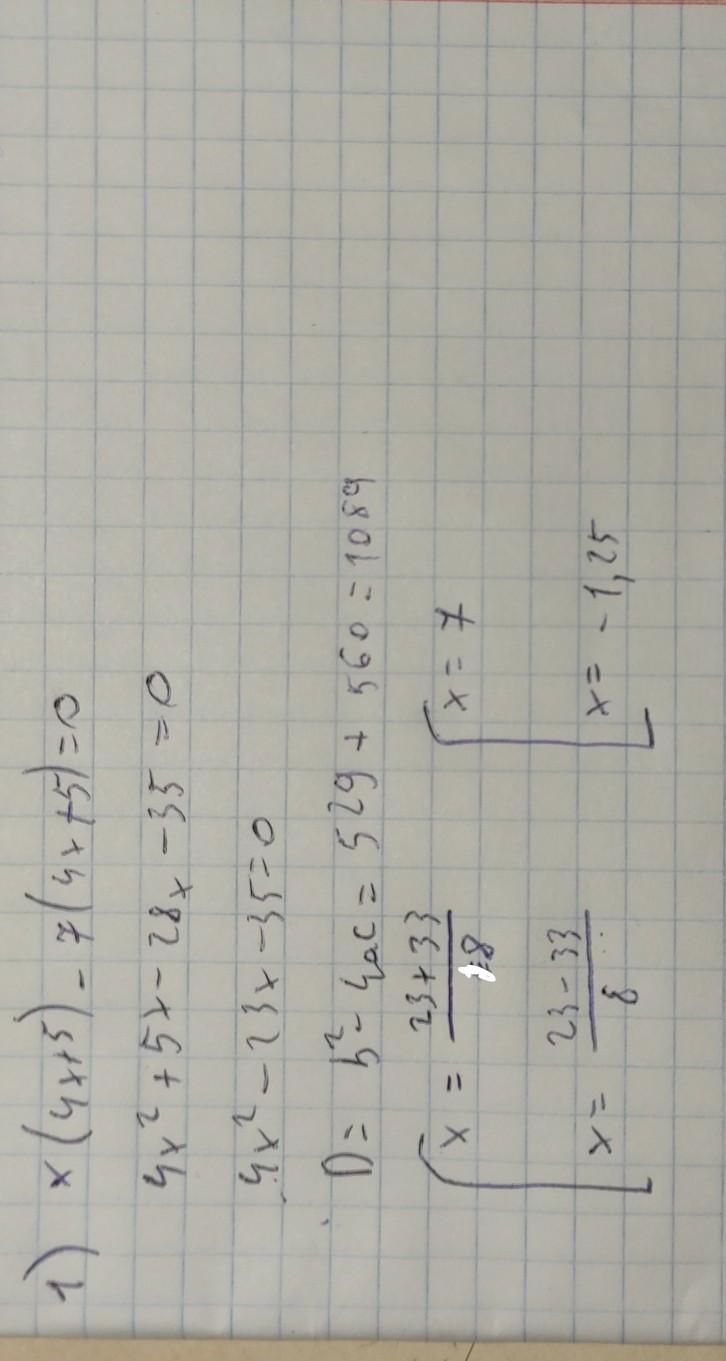 1) x(4x+5)-7(4x+5)=0
4x²+5x-28x-35=0
4x²-23x-35=0
D=b²-4ac=529+560=1089
[x=(23+33)/8 [x=7
x=(23-33)/8 x=-1,25